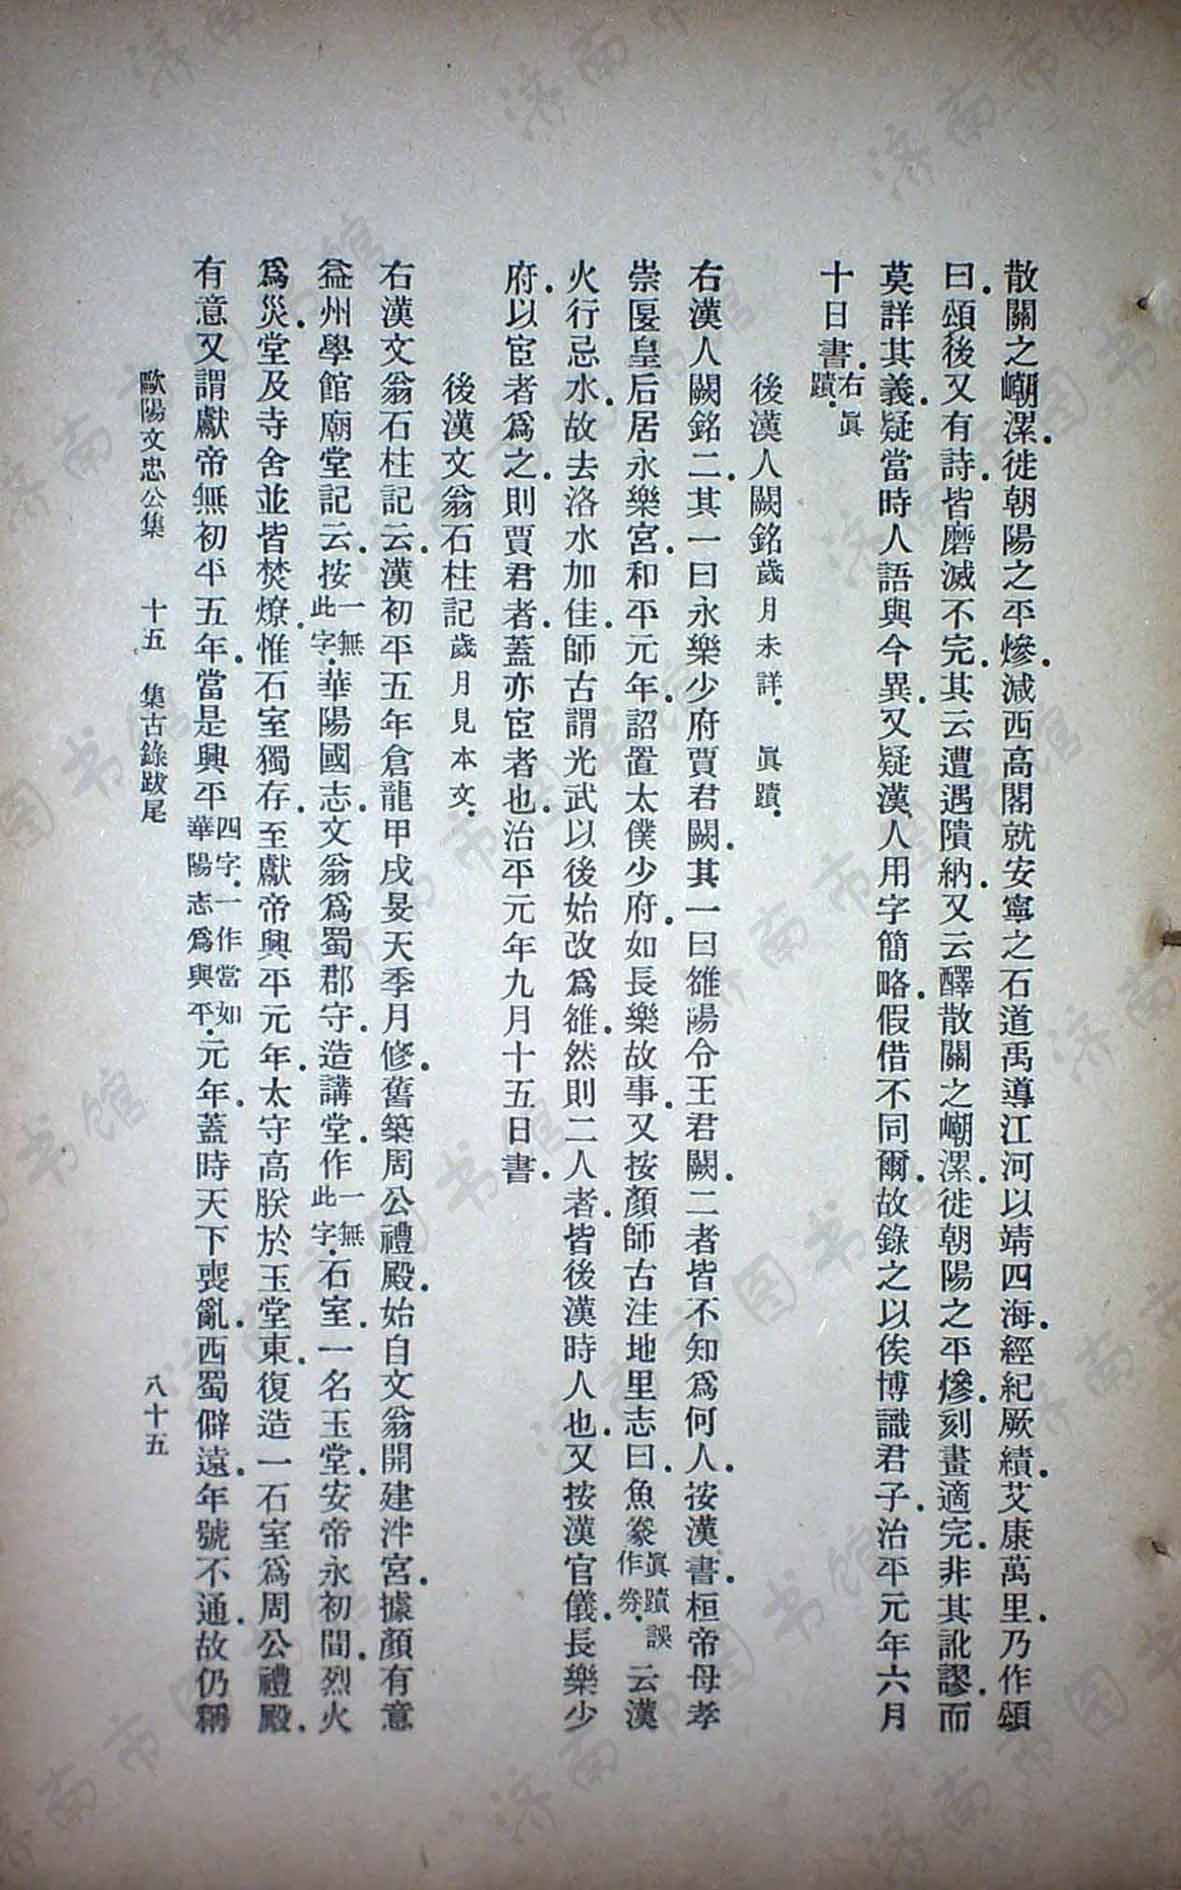 散關之嶓漯．徙朝陽之平慘．減西高閣就安寧之石道禹導江河以靖四海．經紀厥績．艾康萬里．乃作頌
曰．頌後又有詩．皆磨滅不完．其云遭遇隤納．又云醳散關之嶓漯．徙朝陽之平慘．刻畫適完．非其訛謬．而
莫詳其義．疑當時人語與今異．又疑漢人用字簡略．假借不同爾．故錄之以俟博識君子．治平元年六月
十日書．右眞蹟．
後漢人闕銘歲月未詳．眞蹟．
右漢人闕銘二．其一曰永樂少府賈君闕．其一曰雒陽令王君闕．二者皆不知爲何人．按漢書．桓帝母孝
崇匽皇后居永樂宮．和平元年．詔置太僕少府．如長樂故事．又按顏師古注地里志曰．魚豢眞蹟誤作券．云漢
火行忌水．故去洛水加佳．師古謂光武以後始改爲雒．然則二人者．皆後漢時人也．又按漢官儀．長樂少
府．以宦者爲之．則賈君者．蓋亦宦者也．治平元年九月十五日書．
後漢文翁石柱記歲月見本文．
右漢文翁石柱記云．漢初平五年倉龍甲戌旻天季月．修舊築周公禮殿．始自文翁開建泮宮．據顏有意
益州學館廟堂記云．按一無此字．華陽國志．文翁爲蜀郡守．造講堂．作一無此字．石室．一名玉堂．安帝永初間．烈火
爲災．堂及寺舍並皆焚燎．惟石室獨存．至獻帝興平元年．太守高朕於玉堂東．復造一石室爲周公禮殿．
有意又謂獻帝無初平五年．當是興平四字．一作當如華陽志爲興平．元年．蓋時天下喪亂．西蜀僻遠．年號不通．故仍稱
歐陽文忠公集　十五　集古錄跋尾　八十五